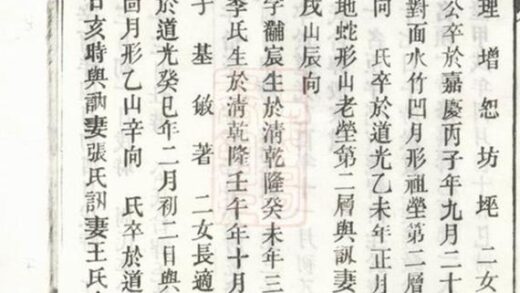 理增恕坊坪二女
公卒於嘉慶丙子年九月二十
對面水竹凹月形祖塋第二層
向　氏卒於道光乙未年正月
地蛇形山老塋第二層與訓妻
戌山辰向
字黼宸生於清乾隆癸未年三
李氏生於清乾隆壬午年十月
子基敏著二女長適
於道光癸巳年二月初二日與
回月形乙山辛向　氏卒於道
日亥時與訓妻張氏訓妻王氏